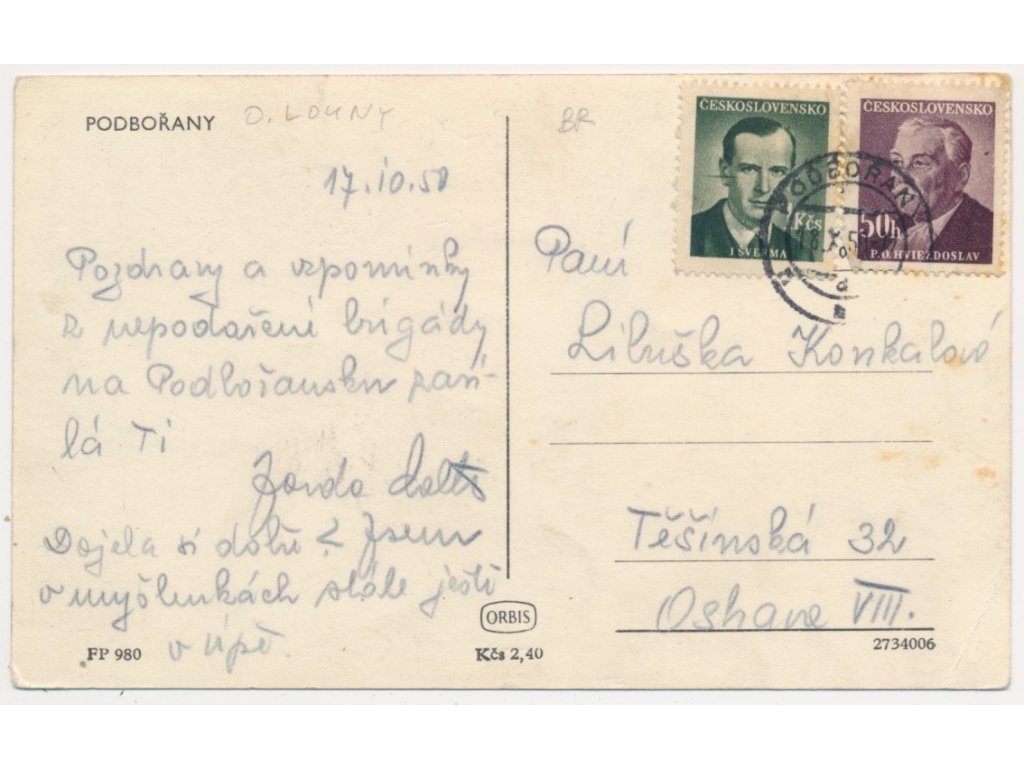 PODBOŘANY
O. LOUNY
BR
17.10.50
Pozdravy a vzpomínky
z nepodařené brigády
na Podbořansku zasí-
lá Ti
Jarda
Dojela si dobře? Jsem
v myšlenkách stále ještě
v
FP 980
ORBIS
Kčs 2,40
ČESKOSLOVENSKO
1 Kčs
J. ŠVERMA
ČESKOSLOVENSKO
50h
P.O. HVIEZDOSLAV
PODBOŘANY
Paní
Libuška
Těšínská 32
VIII.
2734006